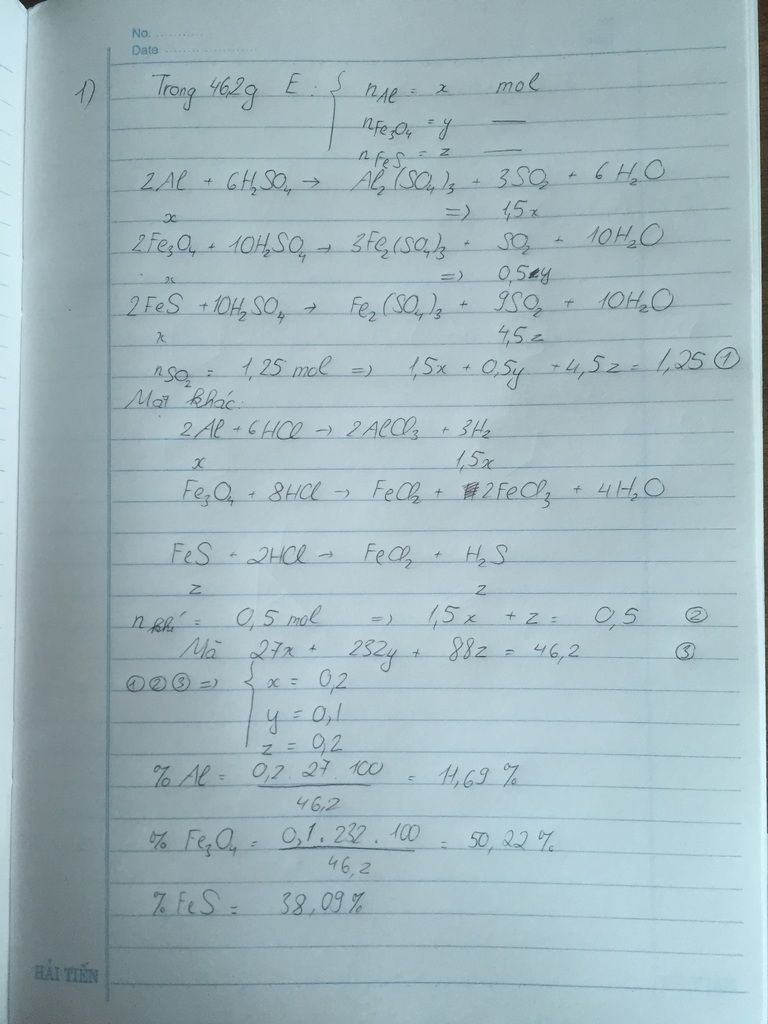 No. ............
Date .....................
1) Trong 46,2g E : { nAl = x mol
nFe3O4 = y —
nFeS = z —
2Al + 6H2SO4 → Al2(SO4)3 + 3SO2 + 6H2O
x => 1,5x
2Fe3O4 + 10H2SO4 → 3Fe2(SO4)3 + SO2 + 10H2O
x => 0,5y
2FeS + 10H2SO4 → Fe2(SO4)3 + 9SO2 + 10H2O
x 4,5z
nSO2 = 1,25 mol => 1,5x + 0,5y + 4,5z = 1,25 ①
Mặt khác:
2Al + 6HCl → 2AlCl3 + 3H2
x 1,5x
Fe3O4 + 8HCl → FeCl2 + 2FeCl3 + 4H2O
FeS + 2HCl → FeCl2 + H2S
z z
n khí = 0,5 mol => 1,5x + z = 0,5 ②
Mà 27x + 232y + 88z = 46,2 ③
①②③ => { x = 0,2
y = 0,1
z = 0,2
% Al = 0,2 . 27 . 100 = 11,69 %
46,2
% Fe3O4 = 0,1 . 232 . 100 = 50,22 %
46,2
% FeS = 38,09%
HẢI TIẾN